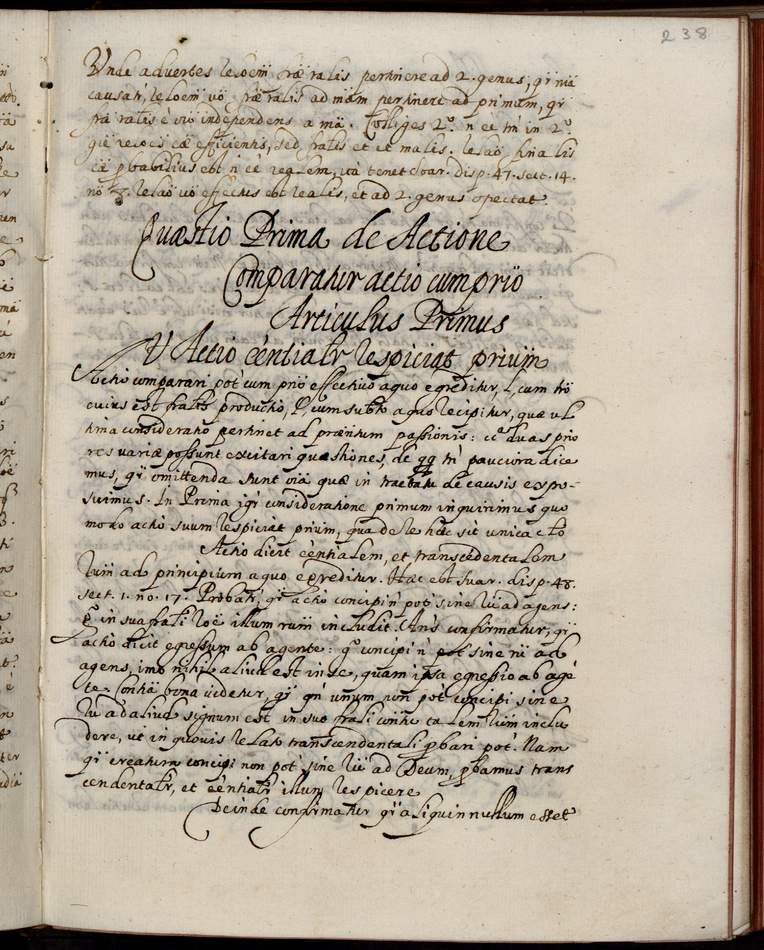 238
Unde advertes rẽlõem mãe rãlis pertinere ad 2. genus, qĩ nĩa
causati, relõem võ frãe rãlis ad mãm pertinere ad primum, qĩ
frã rãlis è vio independens a mã. Colliges 2º. n èe tm̃ in 2º.
gñe rẽoẽs cãe efficientis, sed frãlis et ĩt mãlis. relaõ finalis
cãe probabilius est n èe realem, ità tenet Soar. disp. 47. sect. 14.
nõ 8. relaõ võ effectus est realis, et ad 2. genus spectat.
Quæstio Prima de Actione
Comparatur actio cum prĩo
Articulus Primus
V Actio eẽntialr respiciat priũm
Actio comparari pot cum prĩo effectivo a quo egreditur, l, cum trõ
cuius est frãlis productio, l, cum subto a quo recipitur, quæ ul
tima consideratio pertinet ad præntum passionis: cã duas prio
res variæ possunt excitari quæstiones, de qq tm̃ pauciora dice
mus, qĩ omittenda sunt oĩa quæ in tractatu de causis expo-
suimus. In Prima igr̃ consideratione primum inquirimus quo
modo actio suum respiciat prium, qua de re hæc sit unica cto
Actio dicit eẽntialem, et transcẽdentalem
rũm ad principium a quo egreditur. Hæc est Suar. disp. 48.
sect. 1. no. 17. Probatr, qĩ actio concipi ñ pot sine rũ ad agens:
g in sua frãli rõe illum rũm includit. Ãns confirmatur, qĩ
actio dicit egressum ab agente: g concipi ñ pot sine rũ ad
agens, imò nihil aliud est in se, quam ipsa egressio ab agẽ
te. Conñã bona videtur, qĩ qñ unum non pot concipi sine
rũ ad aliud signum est in suo frãli concũ talem rũm inclu
dere, ut in quovis relato transcendentali probari pot. Nam
qĩ creatura concipi non pot sine rũ ad Deum, probamus trans
cendentalr, et eẽntialr illum respicere
Deinde confirmatur qĩ aliquin nullum esset